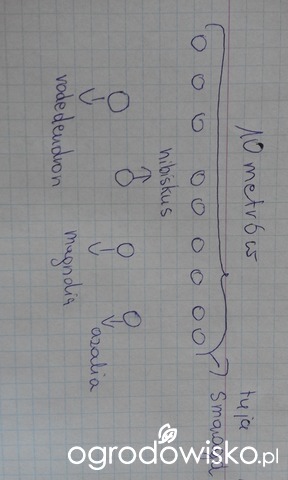 10 metrów
tuja
Smaragd
rododendron
hibiskus
magnolia
azalia
ogrodowisko.pl